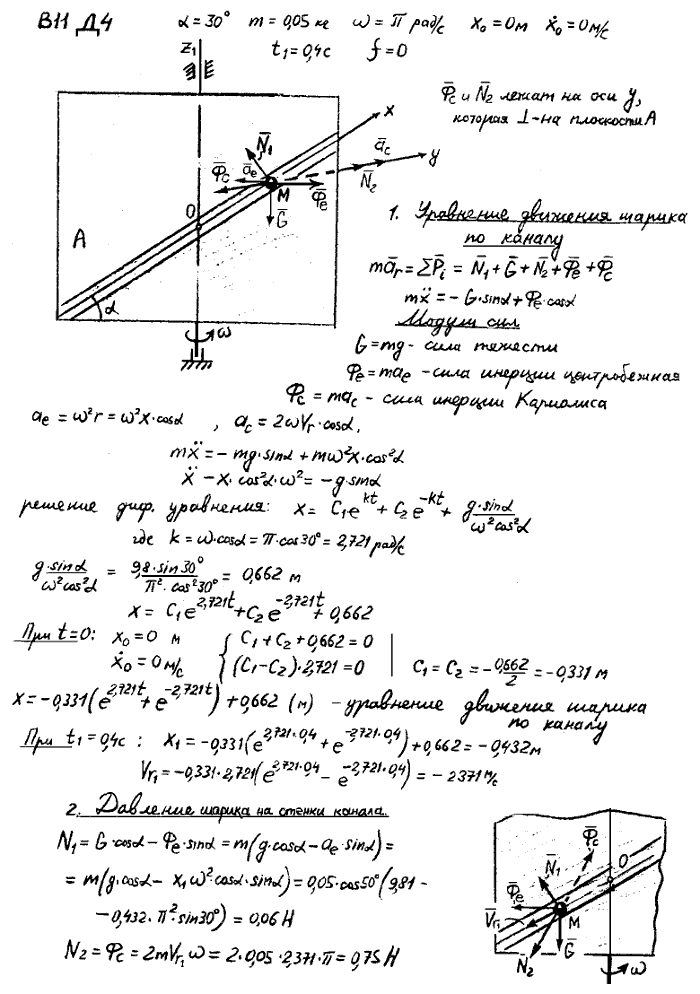 В11 Д4 α=30° m=0,05 кг ω=π рад/с x₀=0м ẋ₀=0м/с
t₁=0,4с f=0
z₁
Φ̄c и N̄₂ лежат на оси y,
которая ⊥-на плоскости А
x
N̄₁
āc
Φ̄c
āe
y
N̄₂
M
Φ̄e
O
Ḡ
A
α
ω
1. Уравнение движения шарика
по каналу
mār = ΣP̄i = N̄₁+Ḡ+N̄₂+Φ̄e+Φ̄c
mẍ = -G·sinα+Φe·cosα
Модули сил
G=mg- сила тяжести
Φe=mae -сила инерции центробежная
Φc = mac - сила инерции Кариолиса
ae = ω²r = ω²x·cosα , ac = 2ωVr·cosα,
mẍ = -mg·sinα + mω²x·cos²α
ẍ - x·cos²α·ω² = -g·sinα
решение диф. уравнения: x = C₁e^kt + C₂e^-kt + g·sinα/ω²cos²α
где k = ω·cosα = π·cos30° = 2,721 рад/с
g·sinα/ω²cos²α = 9,8·sin30°/π²·cos²30° = 0,662 м
x = C₁e^2,721t + C₂e^-2,721t + 0,662
При t=0: x₀=0 м { C₁+C₂+0,662=0
ẋ₀=0 м/с (C₁-C₂)·2,721=0 | C₁=C₂=-0,662/2=-0,331 м
x=-0,331(e^2,721t + e^-2,721t)+0,662 (м) - уравнение движения шарика
по каналу
При t₁=0,4с : x₁=-0,331(e^2,721·0,4 + e^-2,721·0,4)+0,662=-0,432м
Vr₁=-0,331·2,721(e^2,721·0,4 - e^-2,721·0,4)=-2371 м/с
2. Давление шарика на стенки канала.
N₁=G·cosα-Φe·sinα=m(g·cosα-ae·sinα)=
=m(g·cosα-x₁ω²cosα·sinα)=0,05·cos50°(9,81-
-0,432·π²sin30°)=0,06 Н
N₂=Φc=2mVr₁ω=2·0,05·2,371·π=0,75Н
Φ̄c
N̄₁
O
Φ̄e
V̄r₁
M
Ḡ
N̄₂
ω